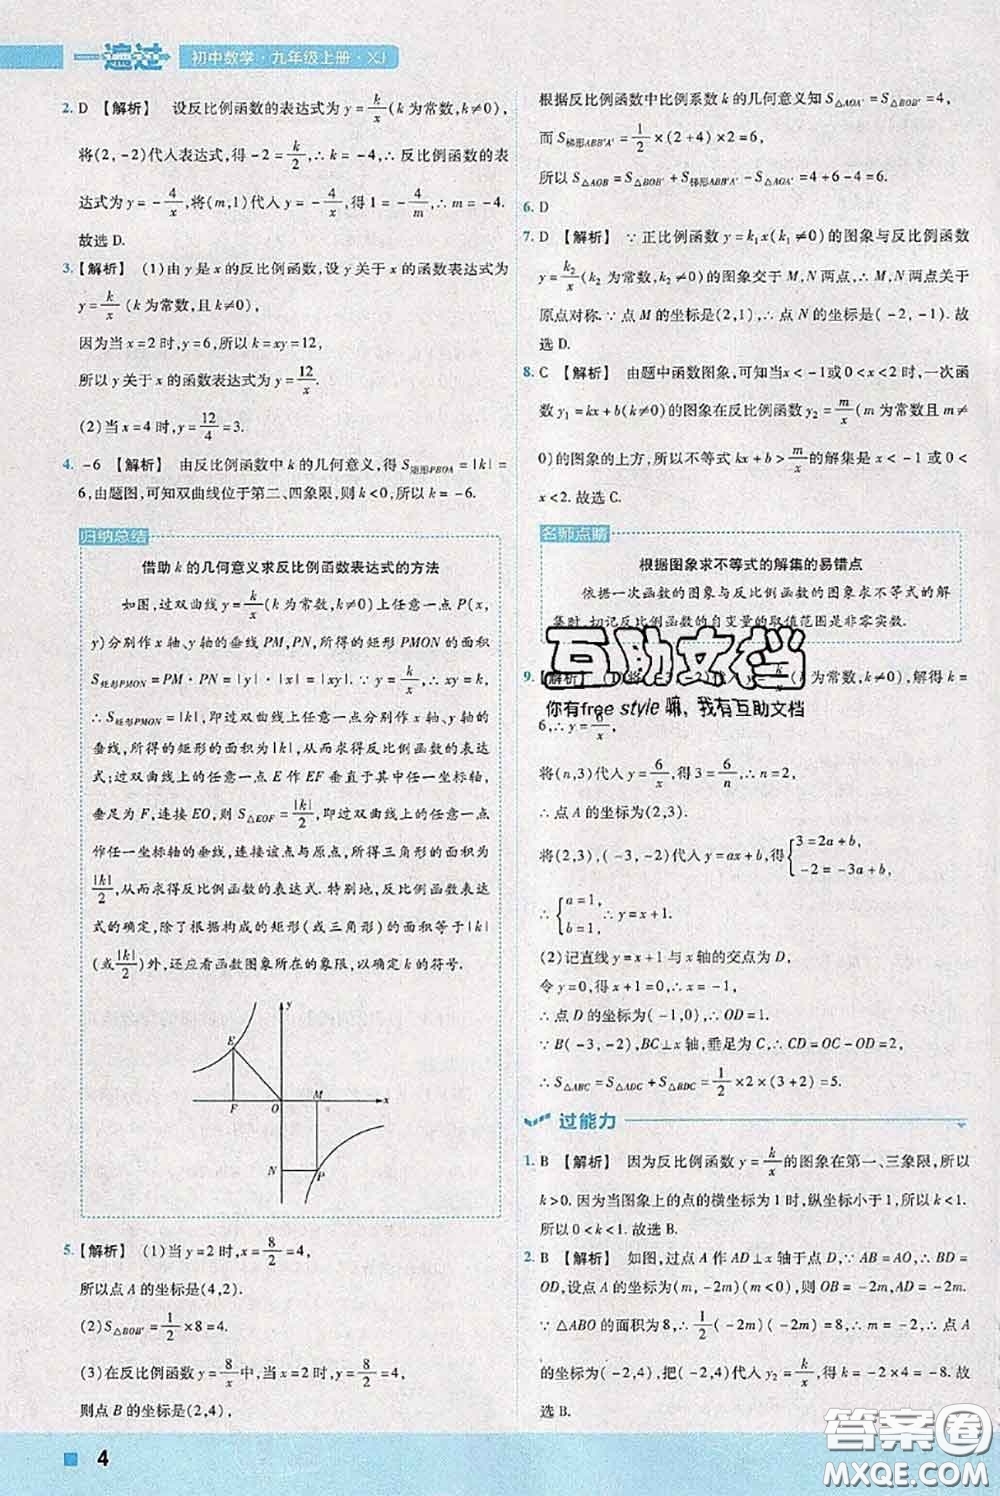 一遍过 初中数学·九年级上册·XJ
2. D 【解析】 设反比例函数的表达式为 y=k/x(k 为常数,k≠0),
将(2,-2)代入表达式,得 -2=k/2,∴k=-4,∴反比例函数的表
达式为 y=-4/x,将(m,1)代入 y=-4/x,得 1=-4/m,∴m=-4.
故选 D.
3.【解析】 (1)由 y 是 x 的反比例函数,设 y 关于 x 的函数表达式为
y=k/x(k 为常数,且 k≠0),
因为当 x=2 时,y=6,所以 k=xy=12,
所以 y 关于 x 的函数表达式为 y=12/x.
(2)当 x=4 时,y=12/4=3.
4. -6 【解析】 由反比例函数中 k 的几何意义,得 S矩形PBOA=|k|=
6,由题图,可知双曲线位于第二、四象限,则 k<0,所以 k=-6.
归纳总结
借助 k 的几何意义求反比例函数表达式的方法
如图,过双曲线 y=k/x(k 为常数,k≠0)上任意一点 P(x,
y)分别作 x 轴、y 轴的垂线 PM,PN,所得的矩形 PMON 的面积
S矩形PMON=PM·PN=|y|·|x|=|xy|.∵y=k/x,∴xy=k,
∴S矩形PMON=|k|,即过双曲线上任意一点分别作 x 轴、y 轴的
垂线,所得的矩形的面积为|k|,从而求得反比例函数的表达
式;过双曲线上的任意一点 E 作 EF 垂直于其中任一坐标轴,
垂足为 F,连接 EO,则 S△EOF=|k|/2,即过双曲线上的任意一点
作任一坐标轴的垂线,连接该点与原点,所得三角形的面积为
|k|/2,从而求得反比例函数的表达式.特别地,反比例函数表达
式的确定,除了根据构成的矩形(或三角形)的面积等于|k|
(或|k|/2)外,还应看函数图象所在的象限,以确定 k 的符号.
y
E
F O M x
N P
5.【解析】 (1)当 y=2 时,x=8/2=4,
所以点 A 的坐标是(4,2).
(2)S△BOB′=1/2×8=4.
(3)在反比例函数 y=8/x中,当 x=2 时,y=8/2=4,
则点 B 的坐标是(2,4),
4
根据反比例函数中比例系数 k 的几何意义知 S△AOA′=S△BOB′=4,
而 S梯形ABB′A′=1/2×(2+4)×2=6,
所以 S△AOB=S△BOB′+S梯形ABB′A′-S△AOA′=4+6-4=6.
6. D
7. D 【解析】 ∵正比例函数 y=k₁x(k₁≠0)的图象与反比例函数
y=k₂/x(k₂ 为常数,k₂≠0)的图象交于 M,N 两点,∴M,N 两点关于
原点对称.∵点 M 的坐标是(2,1),∴点 N 的坐标是(-2,-1).故
选 D.
8. C 【解析】 由题中函数图象,可知当x<-1或0<x<2时,一次函
数 y₁=kx+b(k≠0)的图象在反比例函数 y₂=m/x(m 为常数且 m≠
0)的图象的上方,所以不等式 kx+b>m/x的解集是 x<-1 或 0<
x<2.故选 C.
名师点睛
根据图象求不等式的解集的易错点
依据一次函数的图象与反比例函数的图象求不等式的解
集时,切记反比例函数的自变量的取值范围是非零实数.
9.【解析】 为常数,k≠0),解得 k=
6,∴y=6/x,
将(n,3)代入 y=6/x,得 3=6/n,∴n=2,
∴点 A 的坐标为(2,3).
将(2,3),(-3,-2)代入 y=ax+b,得{3=2a+b, -2=-3a+b,
∴{a=1, b=1,∴y=x+1.
(2)记直线 y=x+1 与 x 轴的交点为 D,
令 y=0,得 x+1=0,∴x=-1,
∴点 D 的坐标为(-1,0),∴OD=1.
∵B(-3,-2),BC⊥x 轴,垂足为 C,∴CD=OC-OD=2,
∴S△ABC=S△ADC+S△BDC=1/2×2×(3+2)=5.
过能力
1. B 【解析】 因为反比例函数 y=k/x的图象在第一、三象限,所以
k>0.因为当图象上的点的横坐标为 1 时,纵坐标小于 1,所以 k<1.
所以 0<k<1.故选 B.
2. B 【解析】 如图,过点 A 作 AD⊥x 轴于点 D,∵AB=AO,∴BD=
OD,设点 A 的坐标为(m,-2m)(m<0),则 OB=-2m,AD=-2m.
∵△ABO 的面积为 8,∴1/2(-2m)(-2m)=8,∴m=-2,∴点 A
的坐标为(-2,4),把(-2,4)代入 y₂=k/x,得 k=-2×4=-8.故
选 B.
互助文档
你有free style 嘛,我有互助文档
答案圈
MXQE.COM